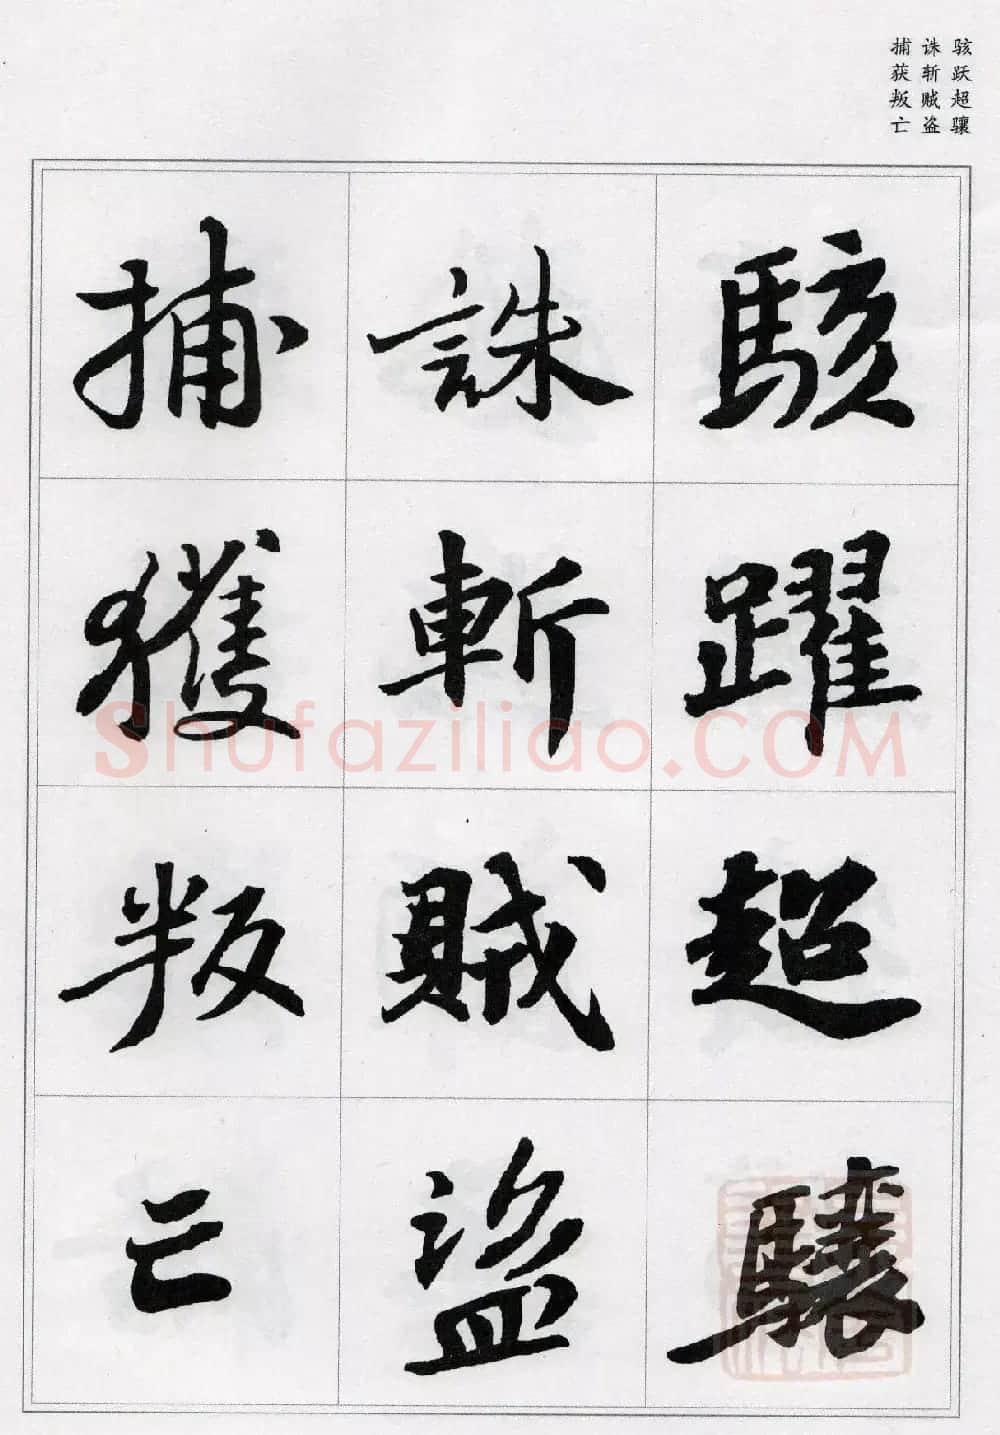 骇跃超骧
诛斩贼盗
捕获叛亡
駭躍超驤
誅斬賊盜
捕獲叛亡
Shufaziliao.COM